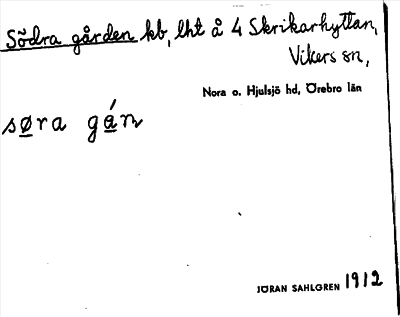 Södra gården kb, lht å 4 Skrikarhyttan,
Vikers sn,
Nora o. Hjulsjö hd, Örebro län
søra gán
JÖRAN SAHLGREN 1912